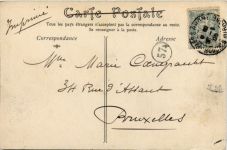 Imprimé
Carte Postale
Tous les pays étrangers n'acceptent pas la correspondance au recto.
Se renseigner à la poste.
Correspondance
Adresse
57A
Mme Marie
34 Rue d'Assaut
Bruxelles